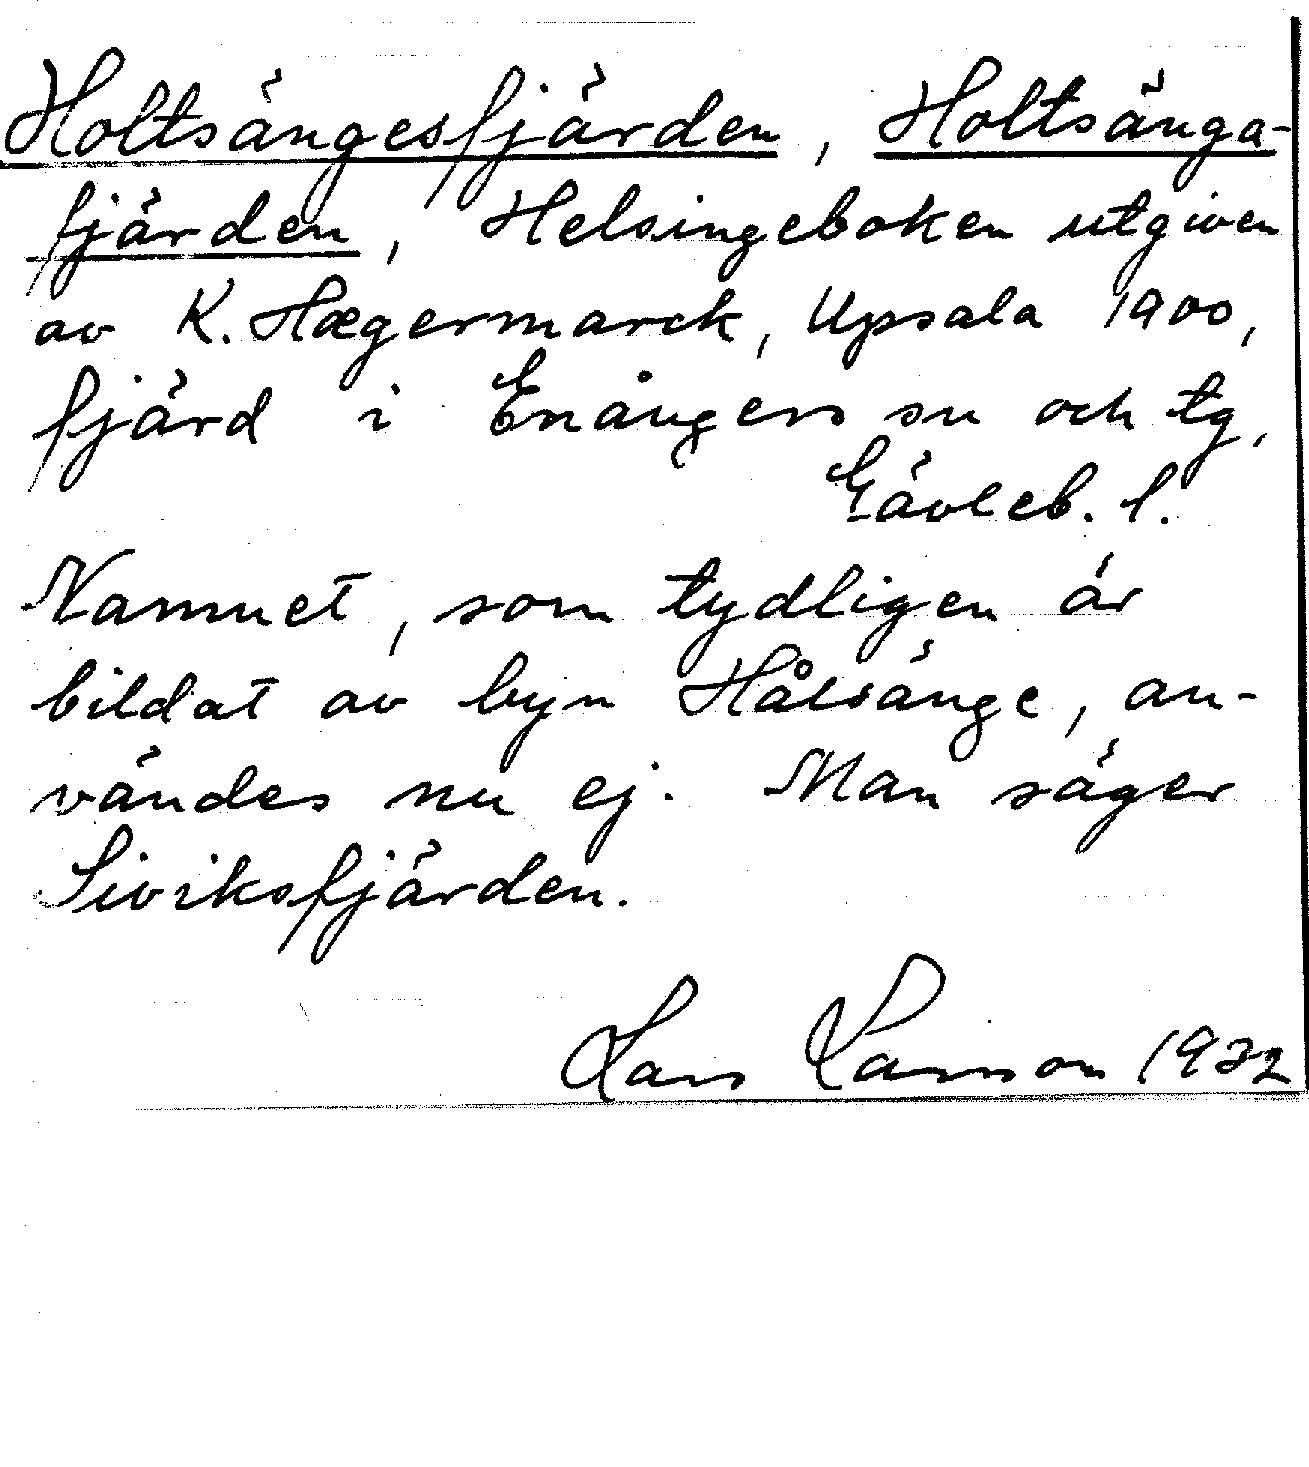 Holtsängesfjärden, Holtsänga-
fjärden, Helsingeboken utgiven
av K. Hægermarck, Upsala 1900,
fjärd i Enångers sn och tg,
Gävleb. l.
Namnet, som tydligen är
bildat av byn Hålsänge, an-
vändes nu ej. Man säger
Siviksfjärden.
Lars Larsson 1932